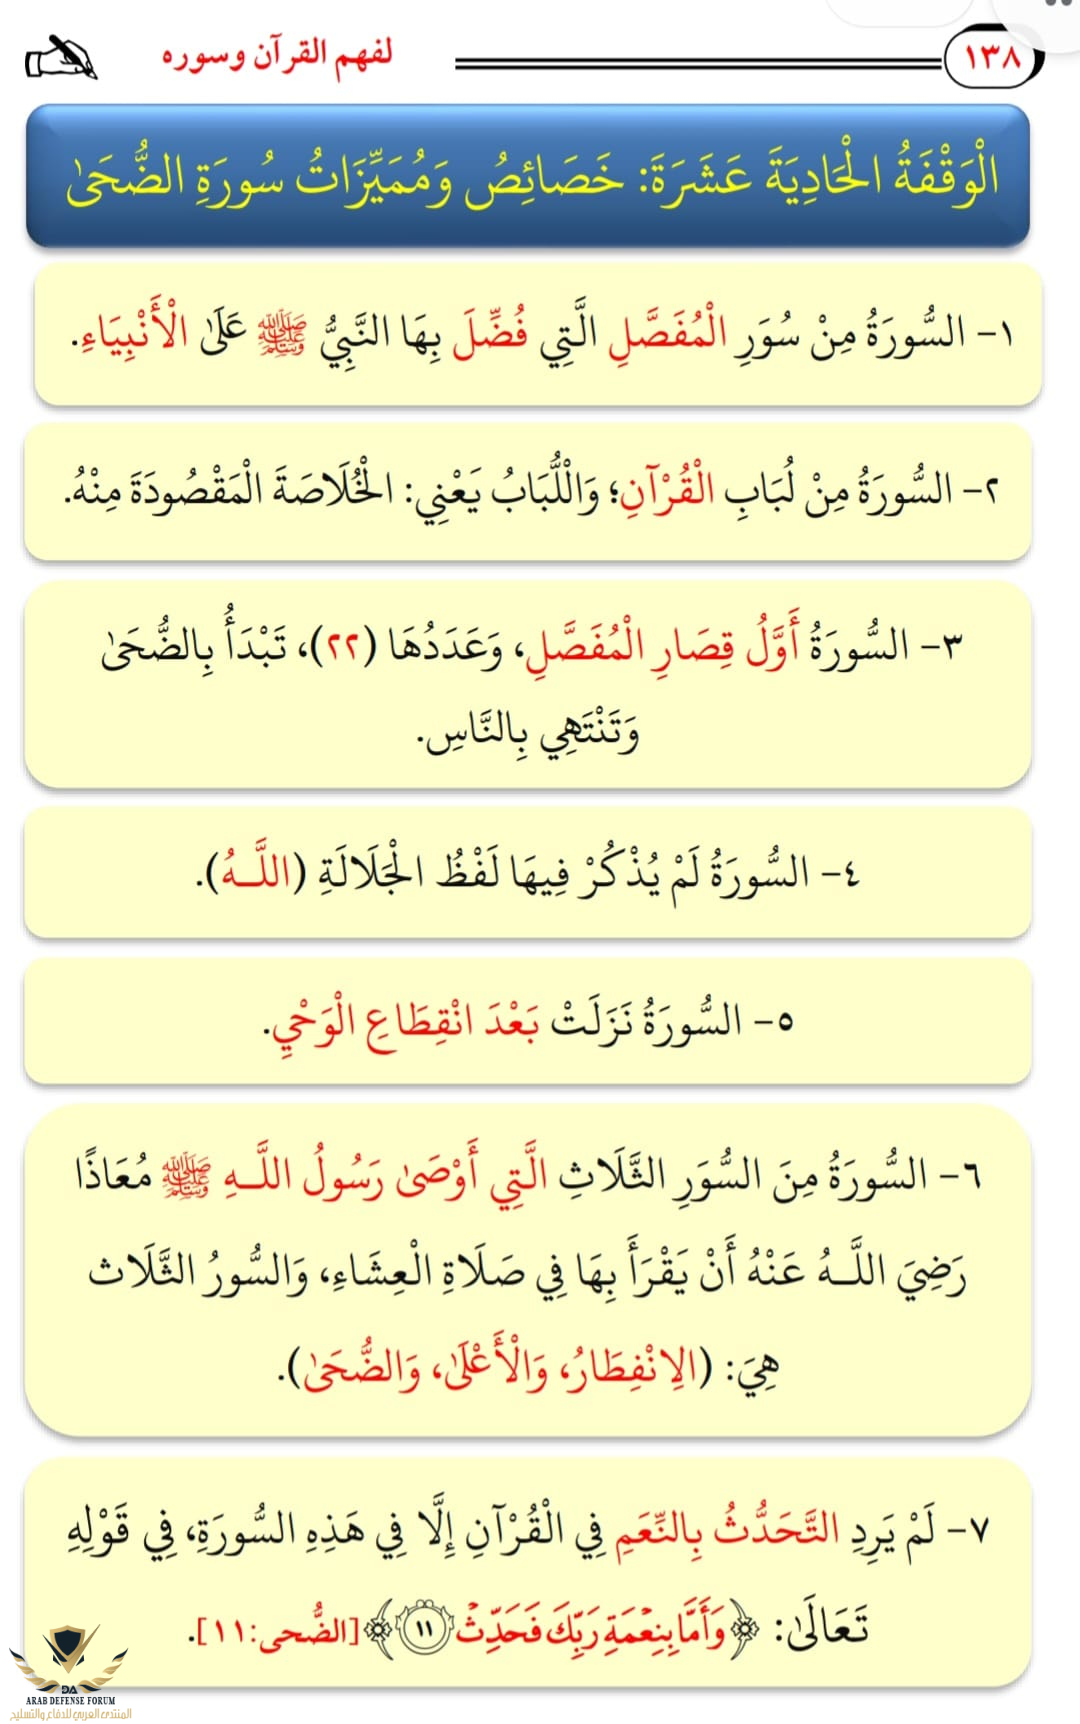 ١٣٨
لفهم القرآن وسوره
الْوَقْفَةُ الْحَادِيَةَ عَشَرَةَ: خَصَائِصُ وَمُمَيِّزَاتُ سُورَةِ الضُّحَىٰ
١- السُّورَةُ مِنْ سُوَرِ الْمُفَصَّلِ الَّتِي فُضِّلَ بِهَا النَّبِيُّ ﷺ عَلَىٰ الْأَنْبِيَاءِ.
٢- السُّورَةُ مِنْ لُبَابِ الْقُرْآنِ؛ وَاللُّبَابُ يَعْنِي: الْخُلَاصَةَ الْمَقْصُودَةَ مِنْهُ.
٣- السُّورَةُ أَوَّلُ قِصَارِ الْمُفَصَّلِ، وَعَدَدُهَا (٢٢)، تَبْدَأُ بِالضُّحَىٰ
وَتَنْتَهِي بِالنَّاسِ.
٤- السُّورَةُ لَمْ يُذْكُرْ فِيهَا لَفْظُ الْجَلَالَةِ (اللَّـهُ).
٥- السُّورَةُ نَزَلَتْ بَعْدَ انْقِطَاعِ الْوَحْيِ.
٦- السُّورَةُ مِنَ السُّوَرِ الثَّلَاثِ الَّتِي أَوْصَىٰ رَسُولُ اللَّـهِ ﷺ مُعَاذًا
رَضِيَ اللَّـهُ عَنْهُ أَنْ يَقْرَأَ بِهَا فِي صَلَاةِ الْعِشَاءِ، وَالسُّورُ الثَّلَاث
هِيَ: (الِانْفِطَارُ، وَالْأَعْلَىٰ، وَالضُّحَىٰ).
٧- لَمْ يَرِدِ التَّحَدُّثُ بِالنِّعَمِ فِي الْقُرْآنِ إِلَّا فِي هَذِهِ السُّورَةِ، فِي قَوْلِهِ
تَعَالَىٰ: ﴿وَأَمَّا بِنِعْمَةِ رَبِّكَ فَحَدِّثْ ١١﴾ [الضُّحى:١١].
DA
ARAB DEFENSE FORUM
المنتدى العربي للدفاع والتسليح